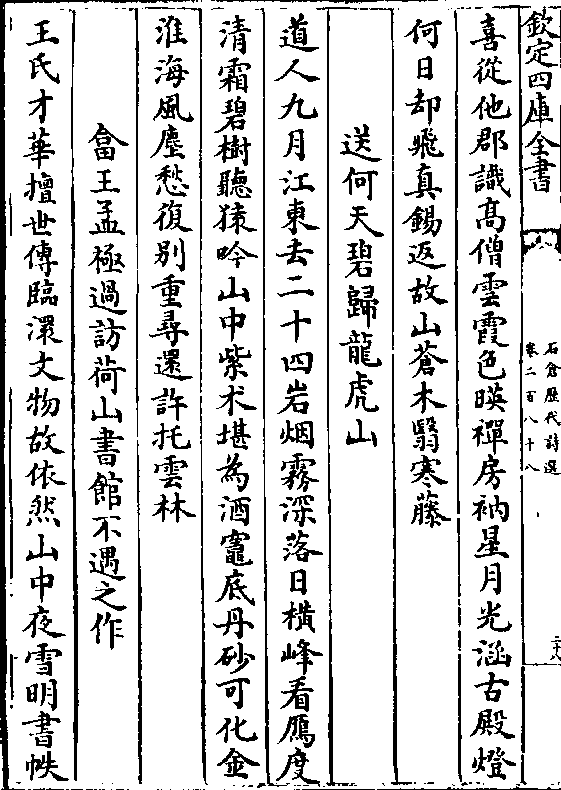 欽定四庫全書
石倉歷代詩選
卷二百八十八
喜從他郡識高僧雲霞色暎禪房衲星月光涵古殿燈
何日却飛真錫返故山蒼木翳寒藤
送何天碧歸龍虎山
道人九月江東去二十四岩烟霧深落日横峰看鴈度
清霜碧樹聽猿吟山中紫术堪為酒竈底丹砂可化金
淮海風塵愁復别重尋還許托雲林
畣王孟極過訪荷山書館不遇之作
王氏才華擅世傳臨濠文物故依然山中夜雪明書帙